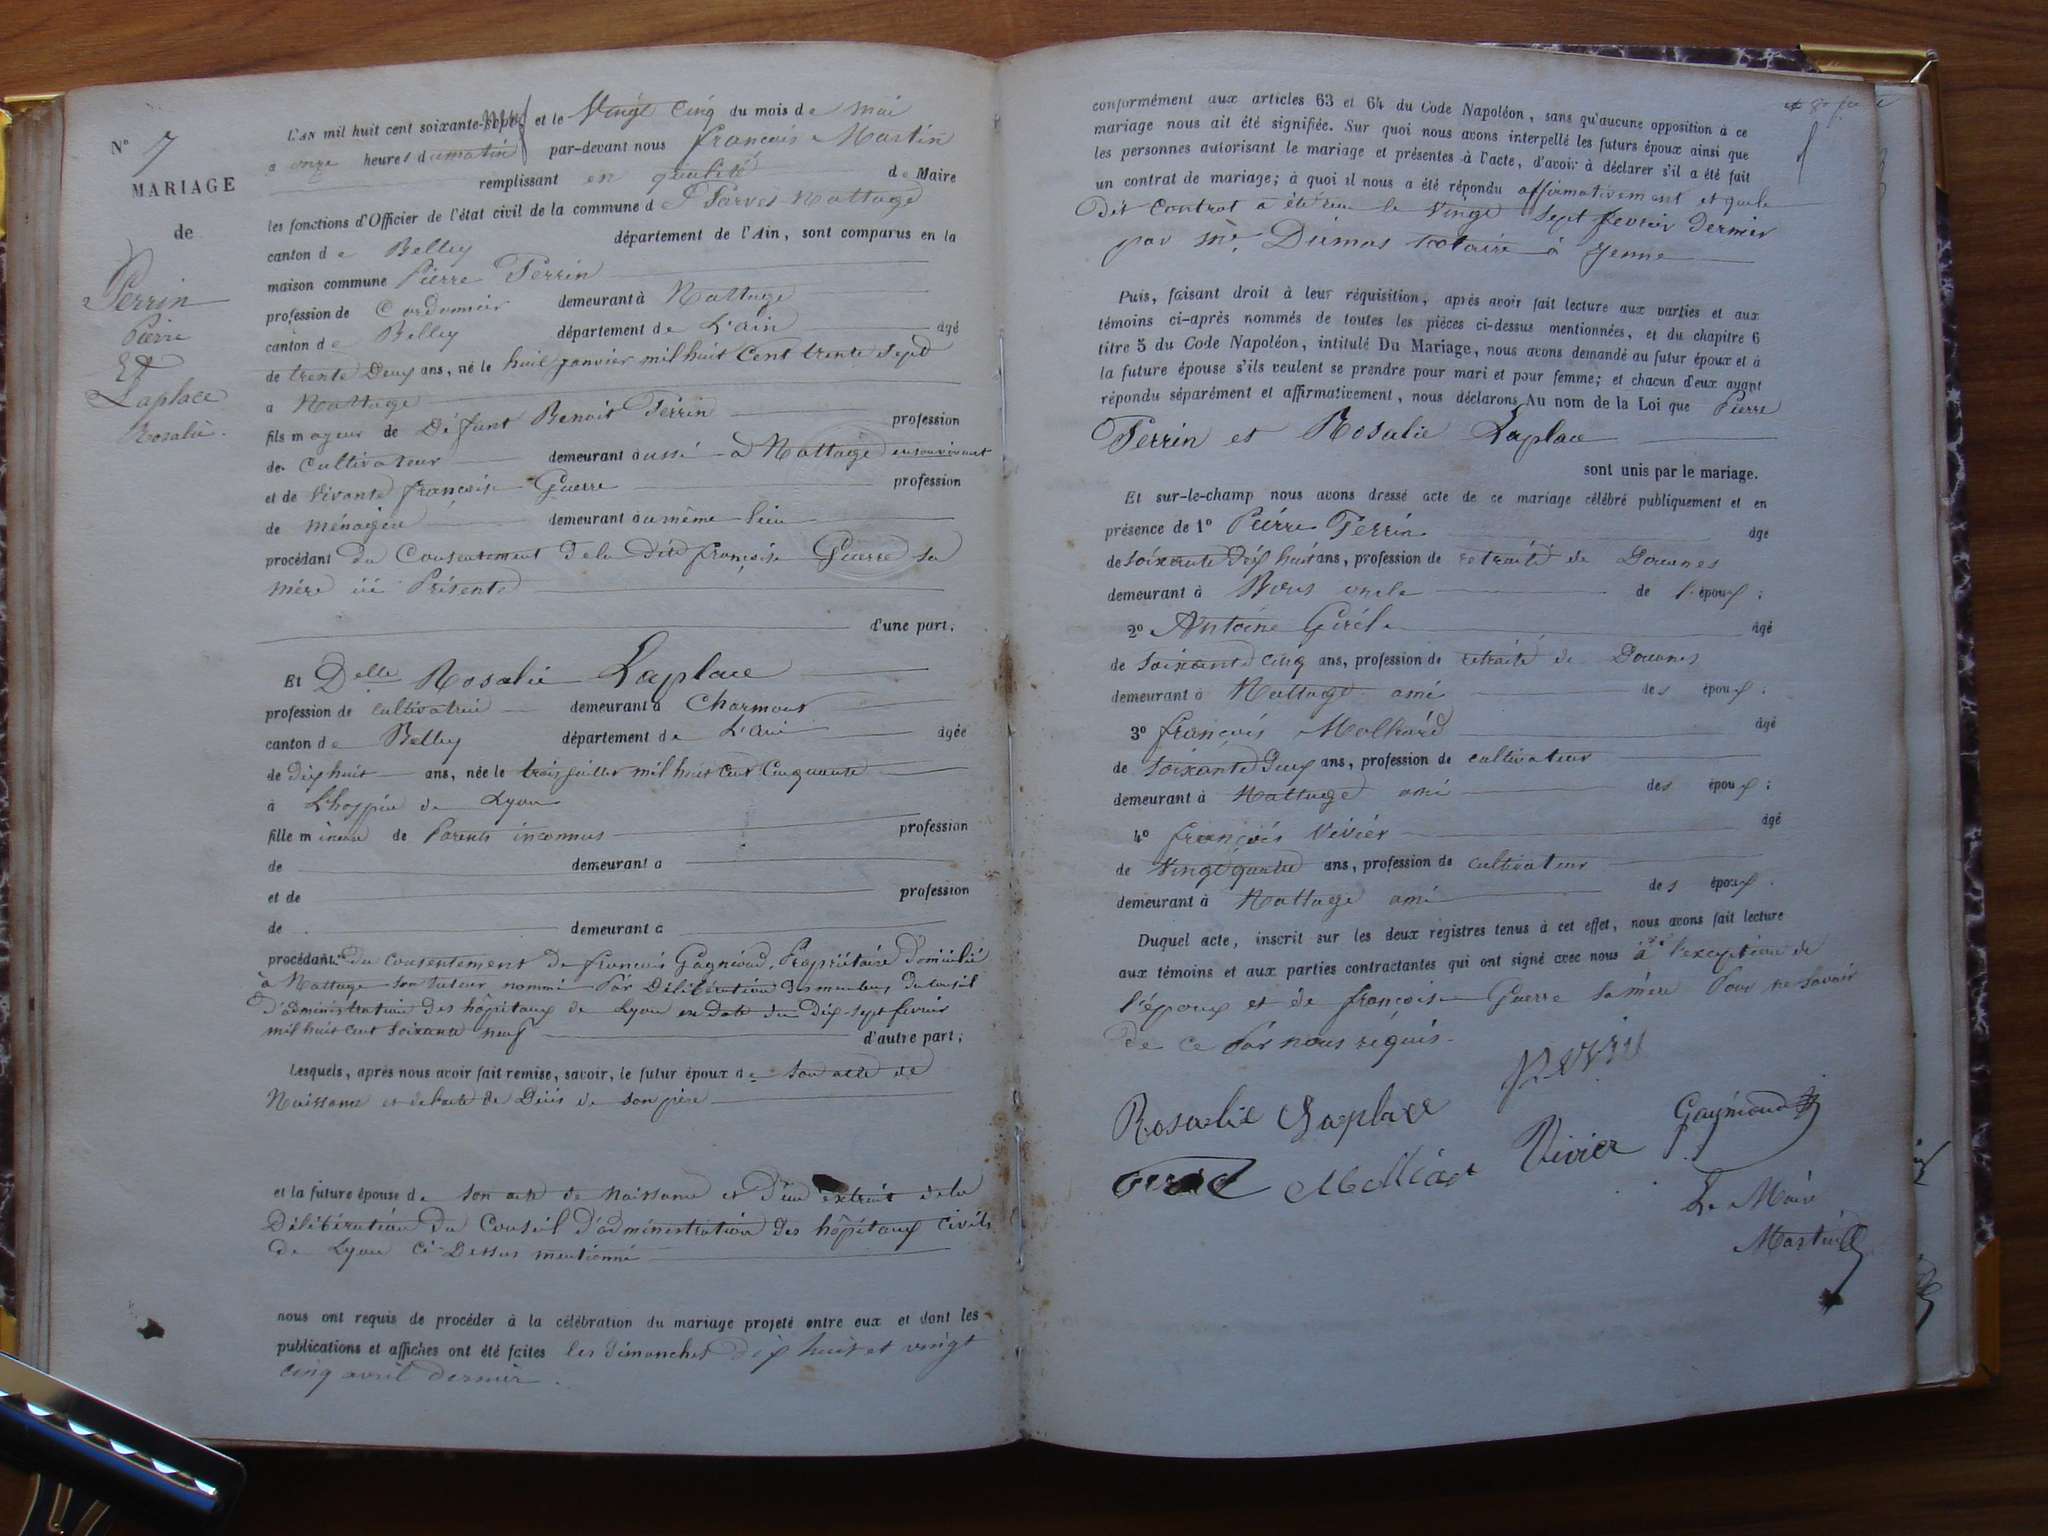 N° 7
MARIAGE
de
Perrin
Pierre
Et
Laplace
Rosalie.
L'AN mil huit cent soixante-neuf et le Vingt Cinq du mois de mai
a onze heures du matin par-devant nous francois Martin
remplissant en qualité de Maire
les fonctions d'Officier de l'état civil de la commune d Parves Nattage
canton de Belley département de l'Ain, sont comparus en la
maison commune Pierre Perrin
profession de Cordonnier demeurant à Nattage
canton de Belley département de L'ain âgé
de trente Deux ans, né le huit janvier mil huit Cent trente sept
a Nattage
fils majeur de Défunt Benoit Perrin profession
de cultivateur demeurant aussi à Nattage en son vivant
et de vivante françoise Guerre profession
de ménagère demeurant au même lieu
procédant du Consentement de la dite françoise Guerre sa
mère ici Présente
d'une part;
Et Delle Rosalie Laplace
profession de cultivatrice demeurant à Charmont
canton de Belley département de L'ain âgée
de dix huit ans, née le trois juillet mil huit cent Cinquante
à L'hospice de Lyon
fille mineure de Parents inconnus profession
de demeurant a
et de profession
de demeurant a
procédant du consentement de francois Gaymoud, Propriétaire domicilié
à Nattage son tuteur nommé Par Délibération des membres du conseil
d'administration des hôpitaux de Lyon en date du Dix-sept fevrier
mil huit cent soixante neuf d'autre part;
Lesquels, après nous avoir fait remise, savoir, le futur époux de son acte de
Naissance et de l'acte de Décès de son père
et la future épouse de son acte de Naissance et d'un extrait de la
Délibération du Conseil d'administration des hôpitaux civils
de Lyon Ci-Dessus mentionné
nous ont requis de procéder à la célébration du mariage projeté entre eux et dont les
publications et affiches ont été faites les dimanches dix huit et vingt
cinq avril dernier.
conformément aux articles 63 et 64 du Code Napoléon, sans qu'aucune opposition à ce
mariage nous ait été signifiée. Sur quoi nous avons interpellé les futurs époux ainsi que
les personnes autorisant le mariage et présentes à l'acte, d'avoir à déclarer s'il a été fait
un contrat de mariage; à quoi il nous a été répondu affirmativement et que le
Dit Contrat a été reçu le vingt sept fevrier dernier
par Me. Dumas notaire à Yenne
Puis, faisant droit à leur réquisition, après avoir fait lecture aux parties et aux
témoins ci-après nommés de toutes les pièces ci-dessus mentionnées, et du chapitre 6
titre 5 du Code Napoléon, intitulé Du Mariage, nous avons demandé au futur époux et à
la future épouse s'ils veulent se prendre pour mari et pour femme; et chacun d'eux ayant
répondu séparément et affirmativement, nous déclarons Au nom de la Loi que Pierre
Perrin et Rosalie Laplace
sont unis par le mariage.
Et sur-le-champ nous avons dressé acte de ce mariage célébré publiquement et en
présence de 1° Pierre Perrin âgé
de soixante dix huit ans, profession de retraité de Douanes
demeurant à oncle de l'époux;
2° Antoine Girel âgé
de soixante cinq ans, profession de retraité de Douanes
demeurant à Nattage ami des époux;
3° françois Molliard âgé
de soixante Deux ans, profession de cultivateur
demeurant à Nattage ami des époux;
4° françois Vivier âgé
de Vingt quatre ans, profession de cultivateur
demeurant à Nattage ami des époux.
Duquel acte, inscrit sur les deux registres tenus à cet effet, nous avons fait lecture
aux témoins et aux parties contractantes qui ont signé avec nous à l'exception de
l'époux et de françoise Guerre sa mère Pour ne savoir
de ce Par nous requis.
Rosalie Laplace
Gaymoud
Vivier
Molliard
Le Maire
Martin